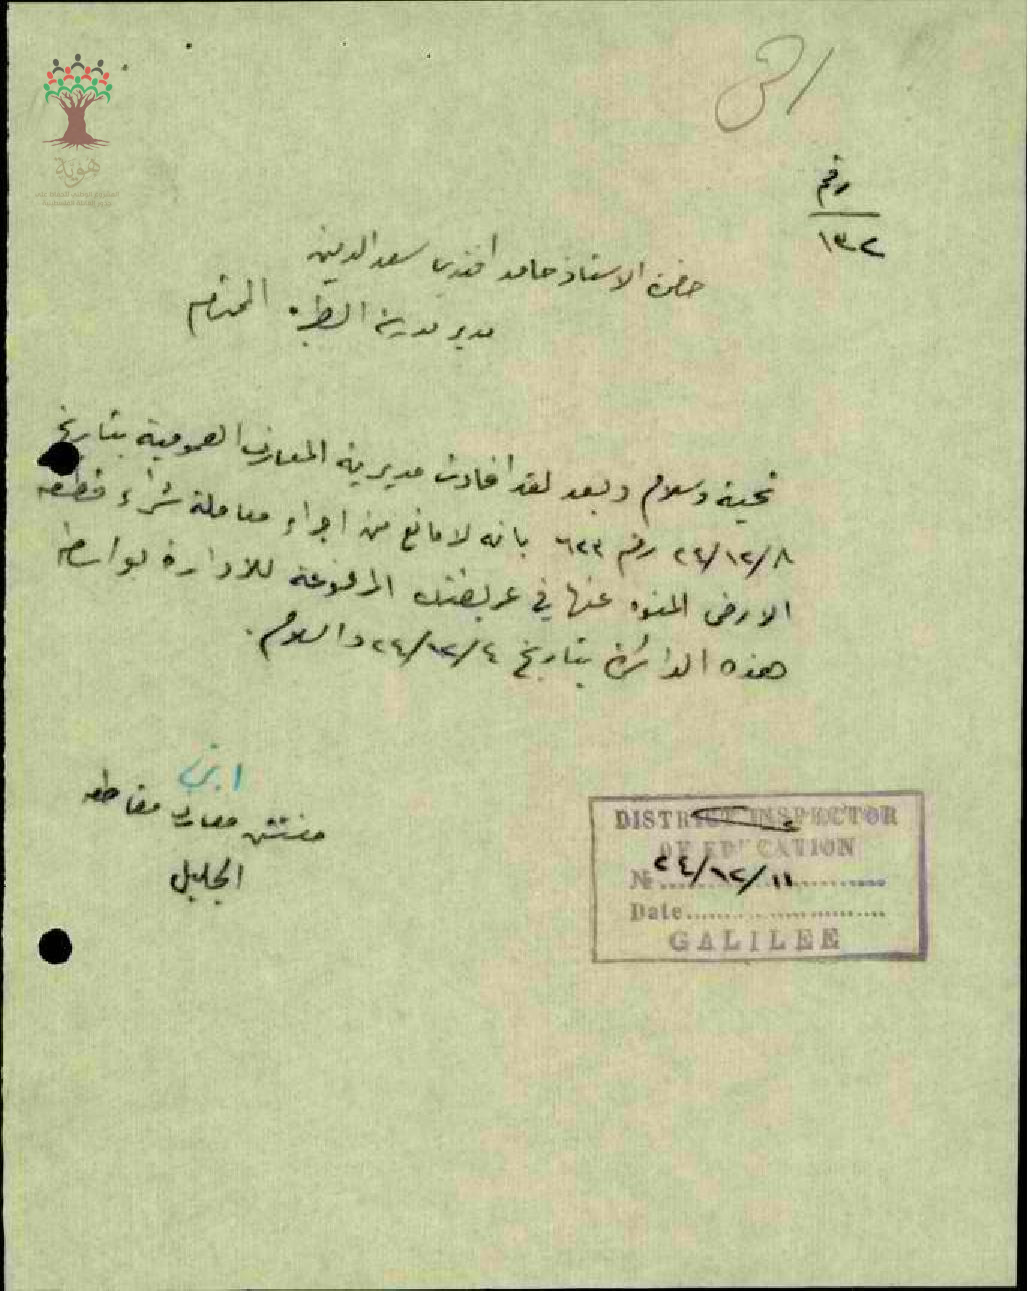 هوية
رقم
١٣٢
حضرة الاستاذ حامد افندي سعد الدين
مدير مدرسة الطيره المحترم
تحية وسلام وبعد لقد افادت مديرية المعارف العمومية بتاريخ
٢٤/١٢/٨ رقم ٦٢٣ بانه لا مانع من اجراء معاملة شراء قطعة
الارض المنوه عنها في عريضتك المرفوعة للادارة بواسطة
هذه الدائرة بتاريخ ٢٤/١٢/٤ والسلام.
مفتش معارف مقاطعة
الجليل
DISTRICT INSPECTOR
OF EDUCATION
№ ٢٤/١٢/١١
Date
GALILEE